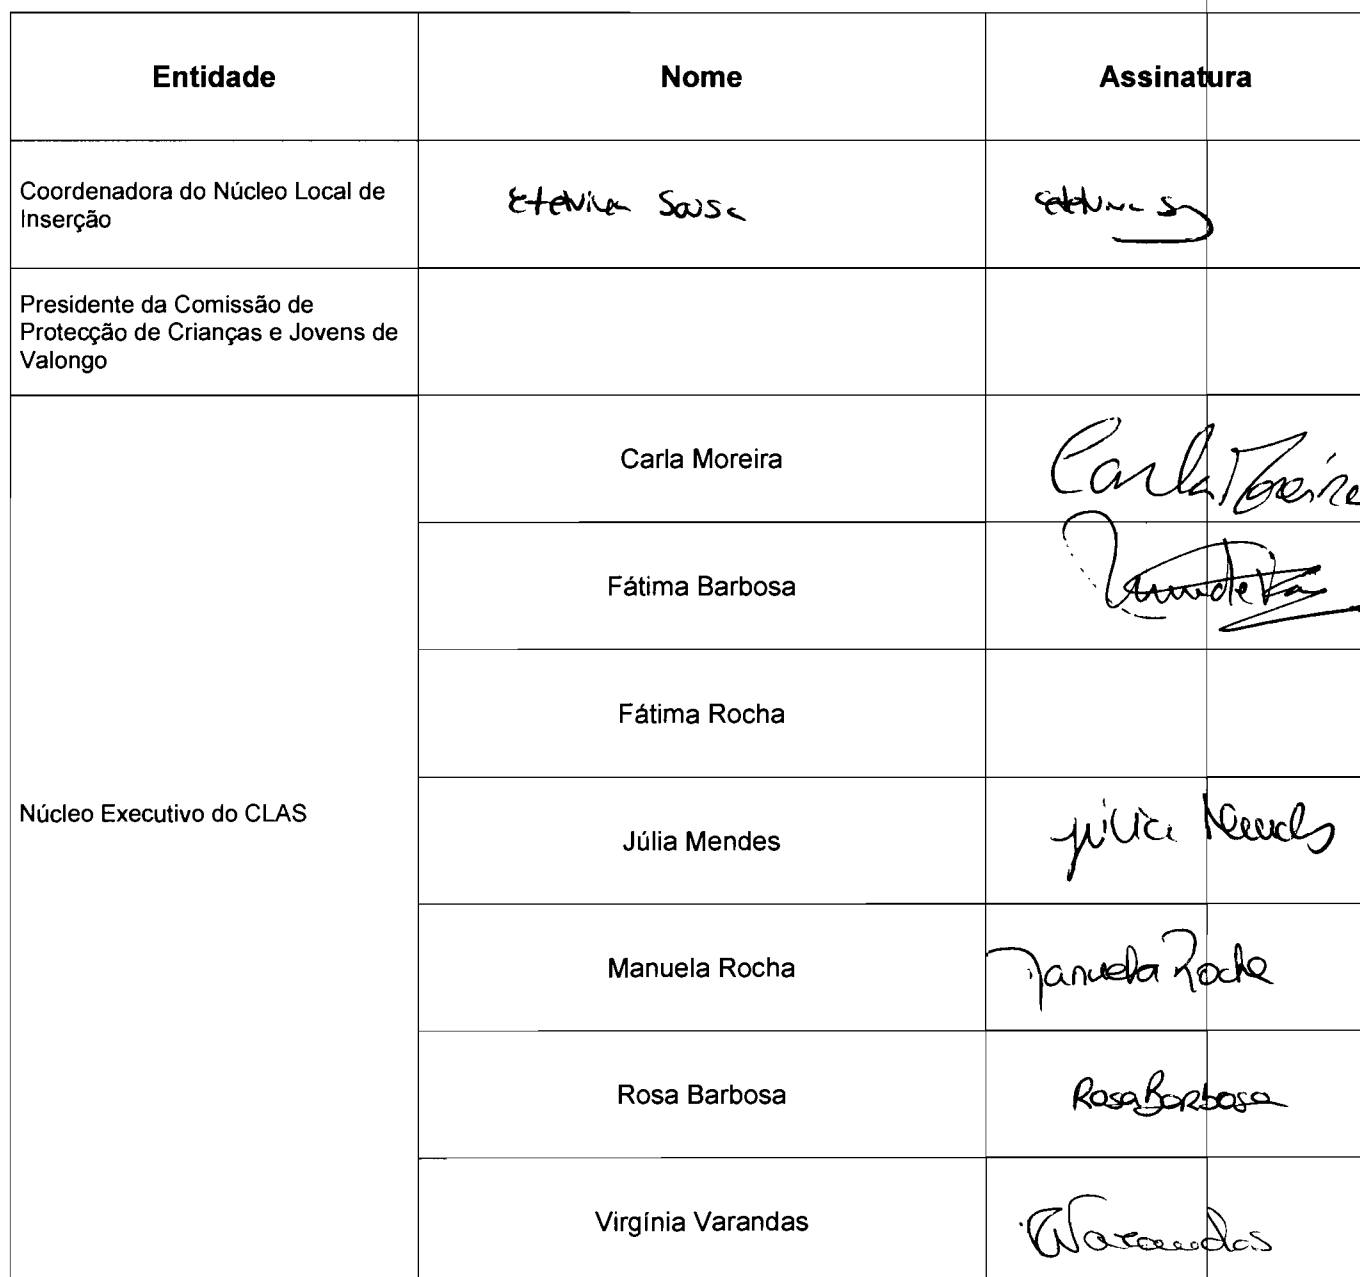 Entidade Nome Assinatura
Coordenadora do Núcleo Local de
Inserção
Etelvina Sousa
Presidente da Comissão de
Protecção de Crianças e Jovens de
Valongo
Núcleo Executivo do CLAS
Carla Moreira Carla Moreira
Fátima Barbosa
Fátima Rocha
Júlia Mendes Júlia Mendes
Manuela Rocha Manuela Rocha
Rosa Barbosa Rosa Barbosa
Virgínia Varandas VVarandas